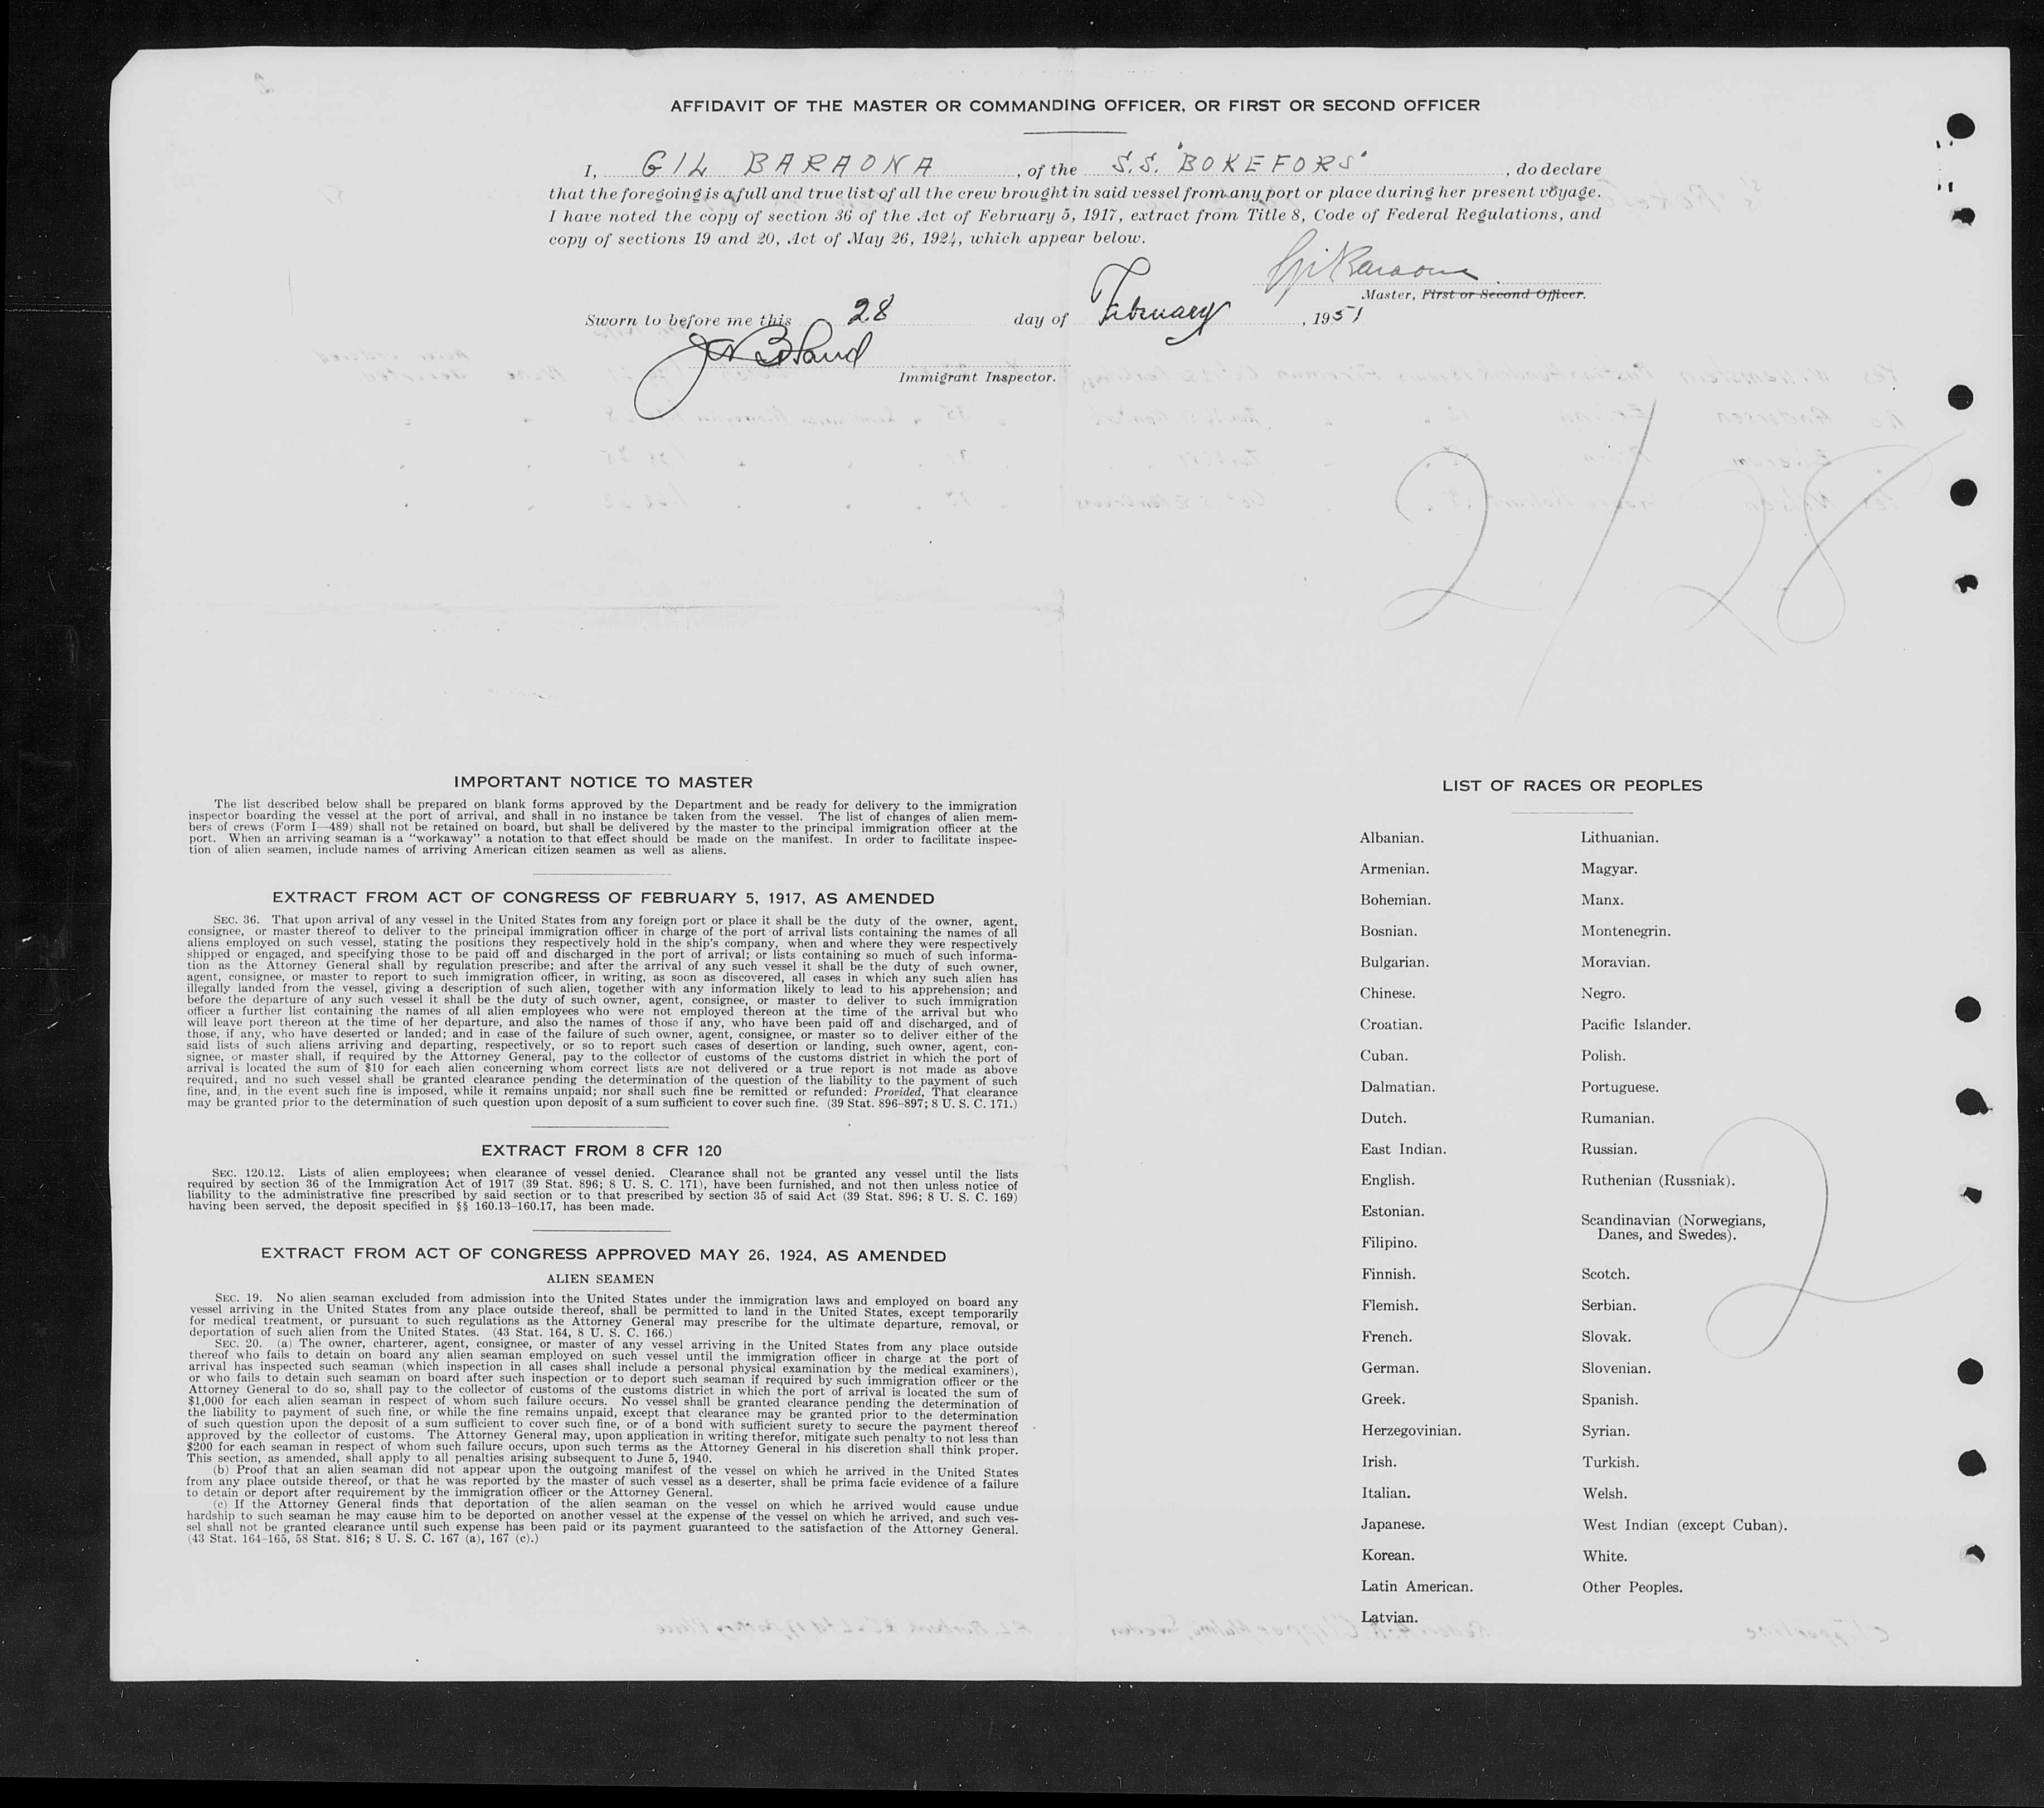 AFFIDAVIT OF THE MASTER OR COMMANDING OFFICER, OR FIRST OR SECOND OFFICER
I, GIL BARAONA, of the S.S. "BOKEFORS", do declare
that the foregoing is a full and true list of all the crew brought in said vessel from any port or place during her present voyage.
I have noted the copy of section 36 of the Act of February 5, 1917, extract from Title 8, Code of Federal Regulations, and
copy of sections 19 and 20, Act of May 26, 1924, which appear below.
Master, First or Second Officer.
Sworn to before me this 28 day of February, 1951
Immigrant Inspector.
2/28
IMPORTANT NOTICE TO MASTER
The list described below shall be prepared on blank forms approved by the Department and be ready for delivery to the immigration
inspector boarding the vessel at the port of arrival, and shall in no instance be taken from the vessel. The list of changes of alien mem-
bers of crews (Form I—489) shall not be retained on board, but shall be delivered by the master to the principal immigration officer at the
port. When an arriving seaman is a "workaway" a notation to that effect should be made on the manifest. In order to facilitate inspec-
tion of alien seamen, include names of arriving American citizen seamen as well as aliens.
EXTRACT FROM ACT OF CONGRESS OF FEBRUARY 5, 1917, AS AMENDED
SEC. 36. That upon arrival of any vessel in the United States from any foreign port or place it shall be the duty of the owner, agent,
consignee, or master thereof to deliver to the principal immigration officer in charge of the port of arrival lists containing the names of all
aliens employed on such vessel, stating the positions they respectively hold in the ship's company, when and where they were respectively
shipped or engaged, and specifying those to be paid off and discharged in the port of arrival; or lists containing so much of such informa-
tion as the Attorney General shall by regulation prescribe; and after the arrival of any such vessel it shall be the duty of such owner,
agent, consignee, or master to report to such immigration officer, in writing, as soon as discovered, all cases in which any such alien has
illegally landed from the vessel, giving a description of such alien, together with any information likely to lead to his apprehension; and
before the departure of any such vessel it shall be the duty of such owner, agent, consignee, or master to deliver to such immigration
officer a further list containing the names of all alien employees who were not employed thereon at the time of the arrival but who
will leave port thereon at the time of her departure, and also the names of those if any, who have been paid off and discharged, and of
those, if any, who have deserted or landed; and in case of the failure of such owner, agent, consignee, or master so to deliver either of the
said lists of such aliens arriving and departing, respectively, or so to report such cases of desertion or landing, such owner, agent, con-
signee, or master shall, if required by the Attorney General, pay to the collector of customs of the customs district in which the port of
arrival is located the sum of $10 for each alien concerning whom correct lists are not delivered or a true report is not made as above
required; and no such vessel shall be granted clearance pending the determination of the question of the liability to the payment of such
fine, and, in the event such fine is imposed, while it remains unpaid; nor shall such fine be remitted or refunded: Provided, That clearance
may be granted prior to the determination of such question upon deposit of a sum sufficient to cover such fine. (39 Stat. 896–897; 8 U. S. C. 171.)
EXTRACT FROM 8 CFR 120
SEC. 120.12. Lists of alien employees; when clearance of vessel denied. Clearance shall not be granted any vessel until the lists
required by section 36 of the Immigration Act of 1917 (39 Stat. 896; 8 U. S. C. 171), have been furnished, and not then unless notice of
liability to the administrative fine prescribed by said section or to that prescribed by section 35 of said Act (39 Stat. 896; 8 U. S. C. 169)
having been served, the deposit specified in §§ 160.13–160.17, has been made.
EXTRACT FROM ACT OF CONGRESS APPROVED MAY 26, 1924, AS AMENDED
ALIEN SEAMEN
SEC. 19. No alien seaman excluded from admission into the United States under the immigration laws and employed on board any
vessel arriving in the United States from any place outside thereof, shall be permitted to land in the United States, except temporarily
for medical treatment, or pursuant to such regulations as the Attorney General may prescribe for the ultimate departure, removal, or
deportation of such alien from the United States. (43 Stat. 164, 8 U. S. C. 166.)
SEC. 20. (a) The owner, charterer, agent, consignee, or master of any vessel arriving in the United States from any place outside
thereof who fails to detain on board any alien seaman employed on such vessel until the immigration officer in charge at the port of
arrival has inspected such seaman (which inspection in all cases shall include a personal physical examination by the medical examiners),
or who fails to detain such seaman on board after such inspection or to deport such seaman if required by such immigration officer or the
Attorney General to do so, shall pay to the collector of customs of the customs district in which the port of arrival is located the sum of
$1,000 for each alien seaman in respect of whom such failure occurs. No vessel shall be granted clearance pending the determination of
the liability to payment of such fine, or while the fine remains unpaid, except that clearance may be granted prior to the determination
of such question upon the deposit of a sum sufficient to cover such fine, or of a bond with sufficient surety to secure the payment thereof
approved by the collector of customs. The Attorney General may, upon application in writing therefor, mitigate such penalty to not less than
$200 for each seaman in respect of whom such failure occurs, upon such terms as the Attorney General in his discretion shall think proper.
This section, as amended, shall apply to all penalties arising subsequent to June 5, 1940.
(b) Proof that an alien seaman did not appear upon the outgoing manifest of the vessel on which he arrived in the United States
from any place outside thereof, or that he was reported by the master of such vessel as a deserter, shall be prima facie evidence of a failure
to detain or deport after requirement by the immigration officer or the Attorney General.
(c) If the Attorney General finds that deportation of the alien seaman on the vessel on which he arrived would cause undue
hardship to such seaman he may cause him to be deported on another vessel at the expense of the vessel on which he arrived, and such ves-
sel shall not be granted clearance until such expense has been paid or its payment guaranteed to the satisfaction of the Attorney General.
(43 Stat. 164–165, 58 Stat. 816; 8 U. S. C. 167 (a), 167 (c).)
LIST OF RACES OR PEOPLES
Albanian.
Armenian.
Bohemian.
Bosnian.
Bulgarian.
Chinese.
Croatian.
Cuban.
Dalmatian.
Dutch.
East Indian.
English.
Estonian.
Filipino.
Finnish.
Flemish.
French.
German.
Greek.
Herzegovinian.
Irish.
Italian.
Japanese.
Korean.
Latin American.
Latvian.
Lithuanian.
Magyar.
Manx.
Montenegrin.
Moravian.
Negro.
Pacific Islander.
Polish.
Portuguese.
Rumanian.
Russian.
Ruthenian (Russniak).
Scandinavian (Norwegians,
Danes, and Swedes).
Scotch.
Serbian.
Slovak.
Slovenian.
Spanish.
Syrian.
Turkish.
Welsh.
West Indian (except Cuban).
White.
Other Peoples.
2